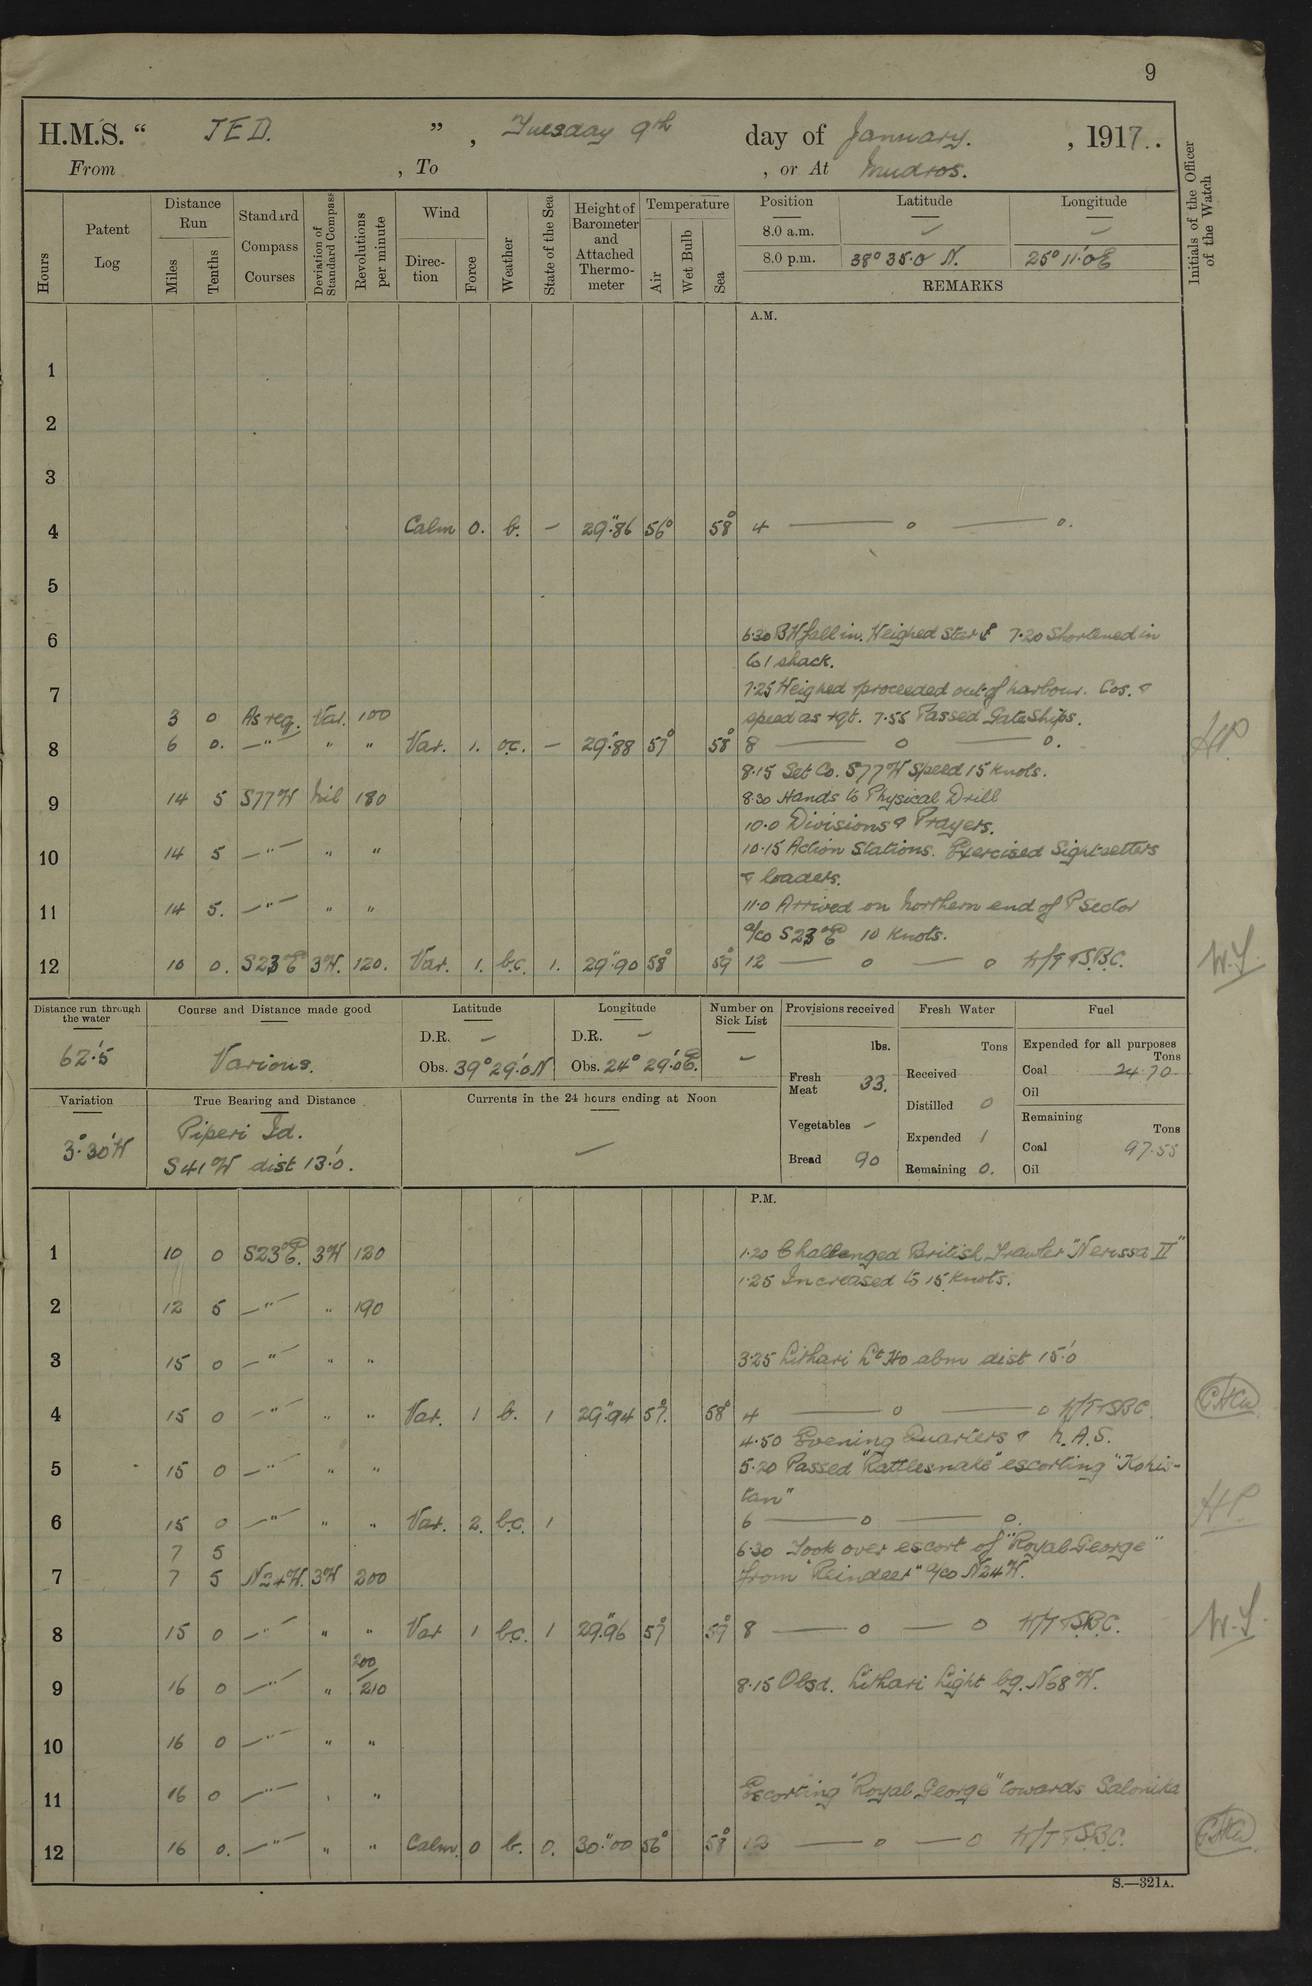 9
H.M.S. “ JED. ” , Tuesday 9th day of January. , 1917..
From , To , or At Mudros.
Hours
Patent Log
Distance Run
Miles
Tenths
Standard Compass Courses
Deviation of Standard Compass
Revolutions per minute
Wind
Direction
Force
Weather
State of the Sea
Height of Barometer and Attached Thermometer
Temperature
Air
Wet Bulb
Sea
Position Latitude Longitude
8.0 a.m. — —
8.0 p.m. 38° 35.0 N. 25° 11.'0 E
REMARKS
Initials of the Officer of the Watch
A.M.
1
2
3
4 Calm 0. b. — 29".86 56° 58° 4 — o — o.
5
6 6.30 BH fall in. Weighed Starb 7.20 Shortened in
to 1 shack.
7 7.25 Weighed & proceeded out of harbour. Cos. &
3 0 As req. Var. 100 speed as rqt. 7.55 Passed Gate Ships.
8 6 0. —"— " " Var. 1. o.c. — 29".88 57° 58° 8 — o — o. HP.
8.15 Set Co. S77W Speed 15 knots.
9 14 5 S77W Nil 180 8.30 Hands to Physical Drill
10.0 Divisions & Prayers.
10 14 5 —"— " " 10.15 Action Stations. Exercised Sightsetters
& loaders.
11 14 5. —"— " " 11.0 Arrived on Northern end of P Sector
a/co S23°E 10 Knots.
12 10 0. S23°E 3W. 120. Var. 1. b.c. 1. 29".90 58° 59° 12 — o — o W/T & S.B.C. W.S.
Distance run through the water
62.'5
Course and Distance made good
Various.
Latitude
D.R. —
Obs. 39° 29.'0 N
Longitude
D.R. —
Obs. 24° 29.'0 E.
Number on Sick List
—
Provisions received
lbs.
Fresh Meat 33.
Vegetables —
Bread 90
Fresh Water
Tons
Received
Distilled 0
Expended 1
Remaining 0.
Fuel
Expended for all purposes
Tons
Coal 24.70
Oil
Remaining
Tons
Coal 97.55
Oil
Variation
3°.30'W
True Bearing and Distance
Piperi Id.
S41W dist 13.'0.
Currents in the 24 hours ending at Noon
—
P.M.
1 10 0 S23°E. 3W 120 1.20 Challenged British Trawler "Nerissa II"
1.25 Increased to 15 knots.
2 12 5 —"— " 190
3 15 0 —"— " " 3.25 Lithari Lt Ho abm dist 15.'0
4 15 0 —"— " " Var. 1 b. 1 29".94 57°. 58° 4 — o — o W/T & SBC.
4.50 Evening Quarters & N.A.S.
5 15 0 —"— " " 5.20 Passed "Rattlesnake" escorting "Kohis-
tan"
6 15 0 —"— " " Var. 2. b.c. 1 6 — o — o. HP.
7 5 6.30 Took over escort of "Royal George"
7 7 5 N24W. 3W 200 from "Reindeer" a/co N24W.
8 15 0 —"— " " Var 1 b.c. 1 29".96 57° 59° 8 — o — o W/T & S.B.C. W.S.
9 16 0 —"— " 200/210 8.15 Obsd. Lithari Light bg. N68W.
10 16 0 —"— " "
11 16 0 —"— " " Escorting "Royal George" towards Salonika
12 16 0. —"— " " Calm. 0 b. 0. 30".00 56° 58° 12 — o — o W/T & S.B.C.
S.—321A.